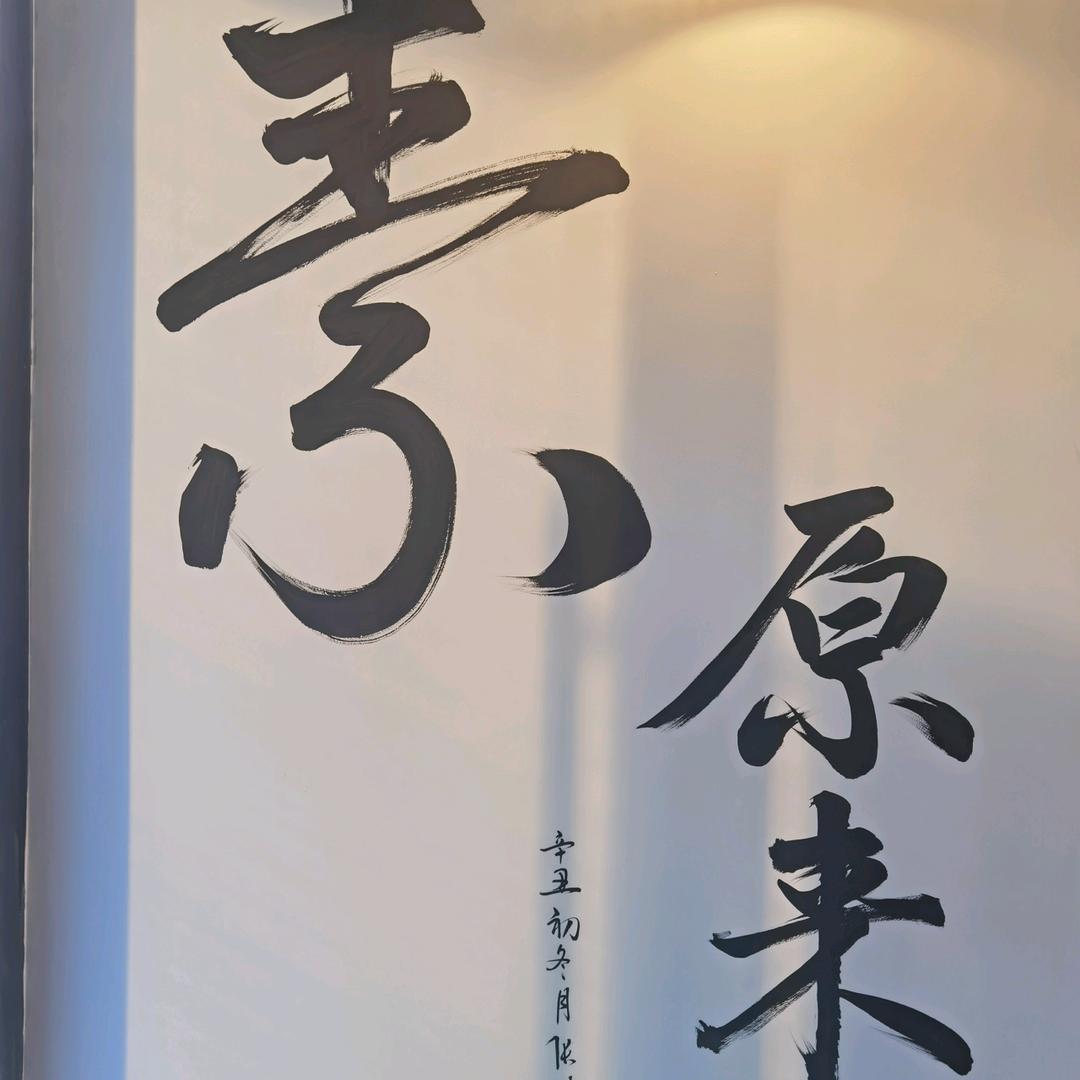 原来
素
辛丑初冬月张